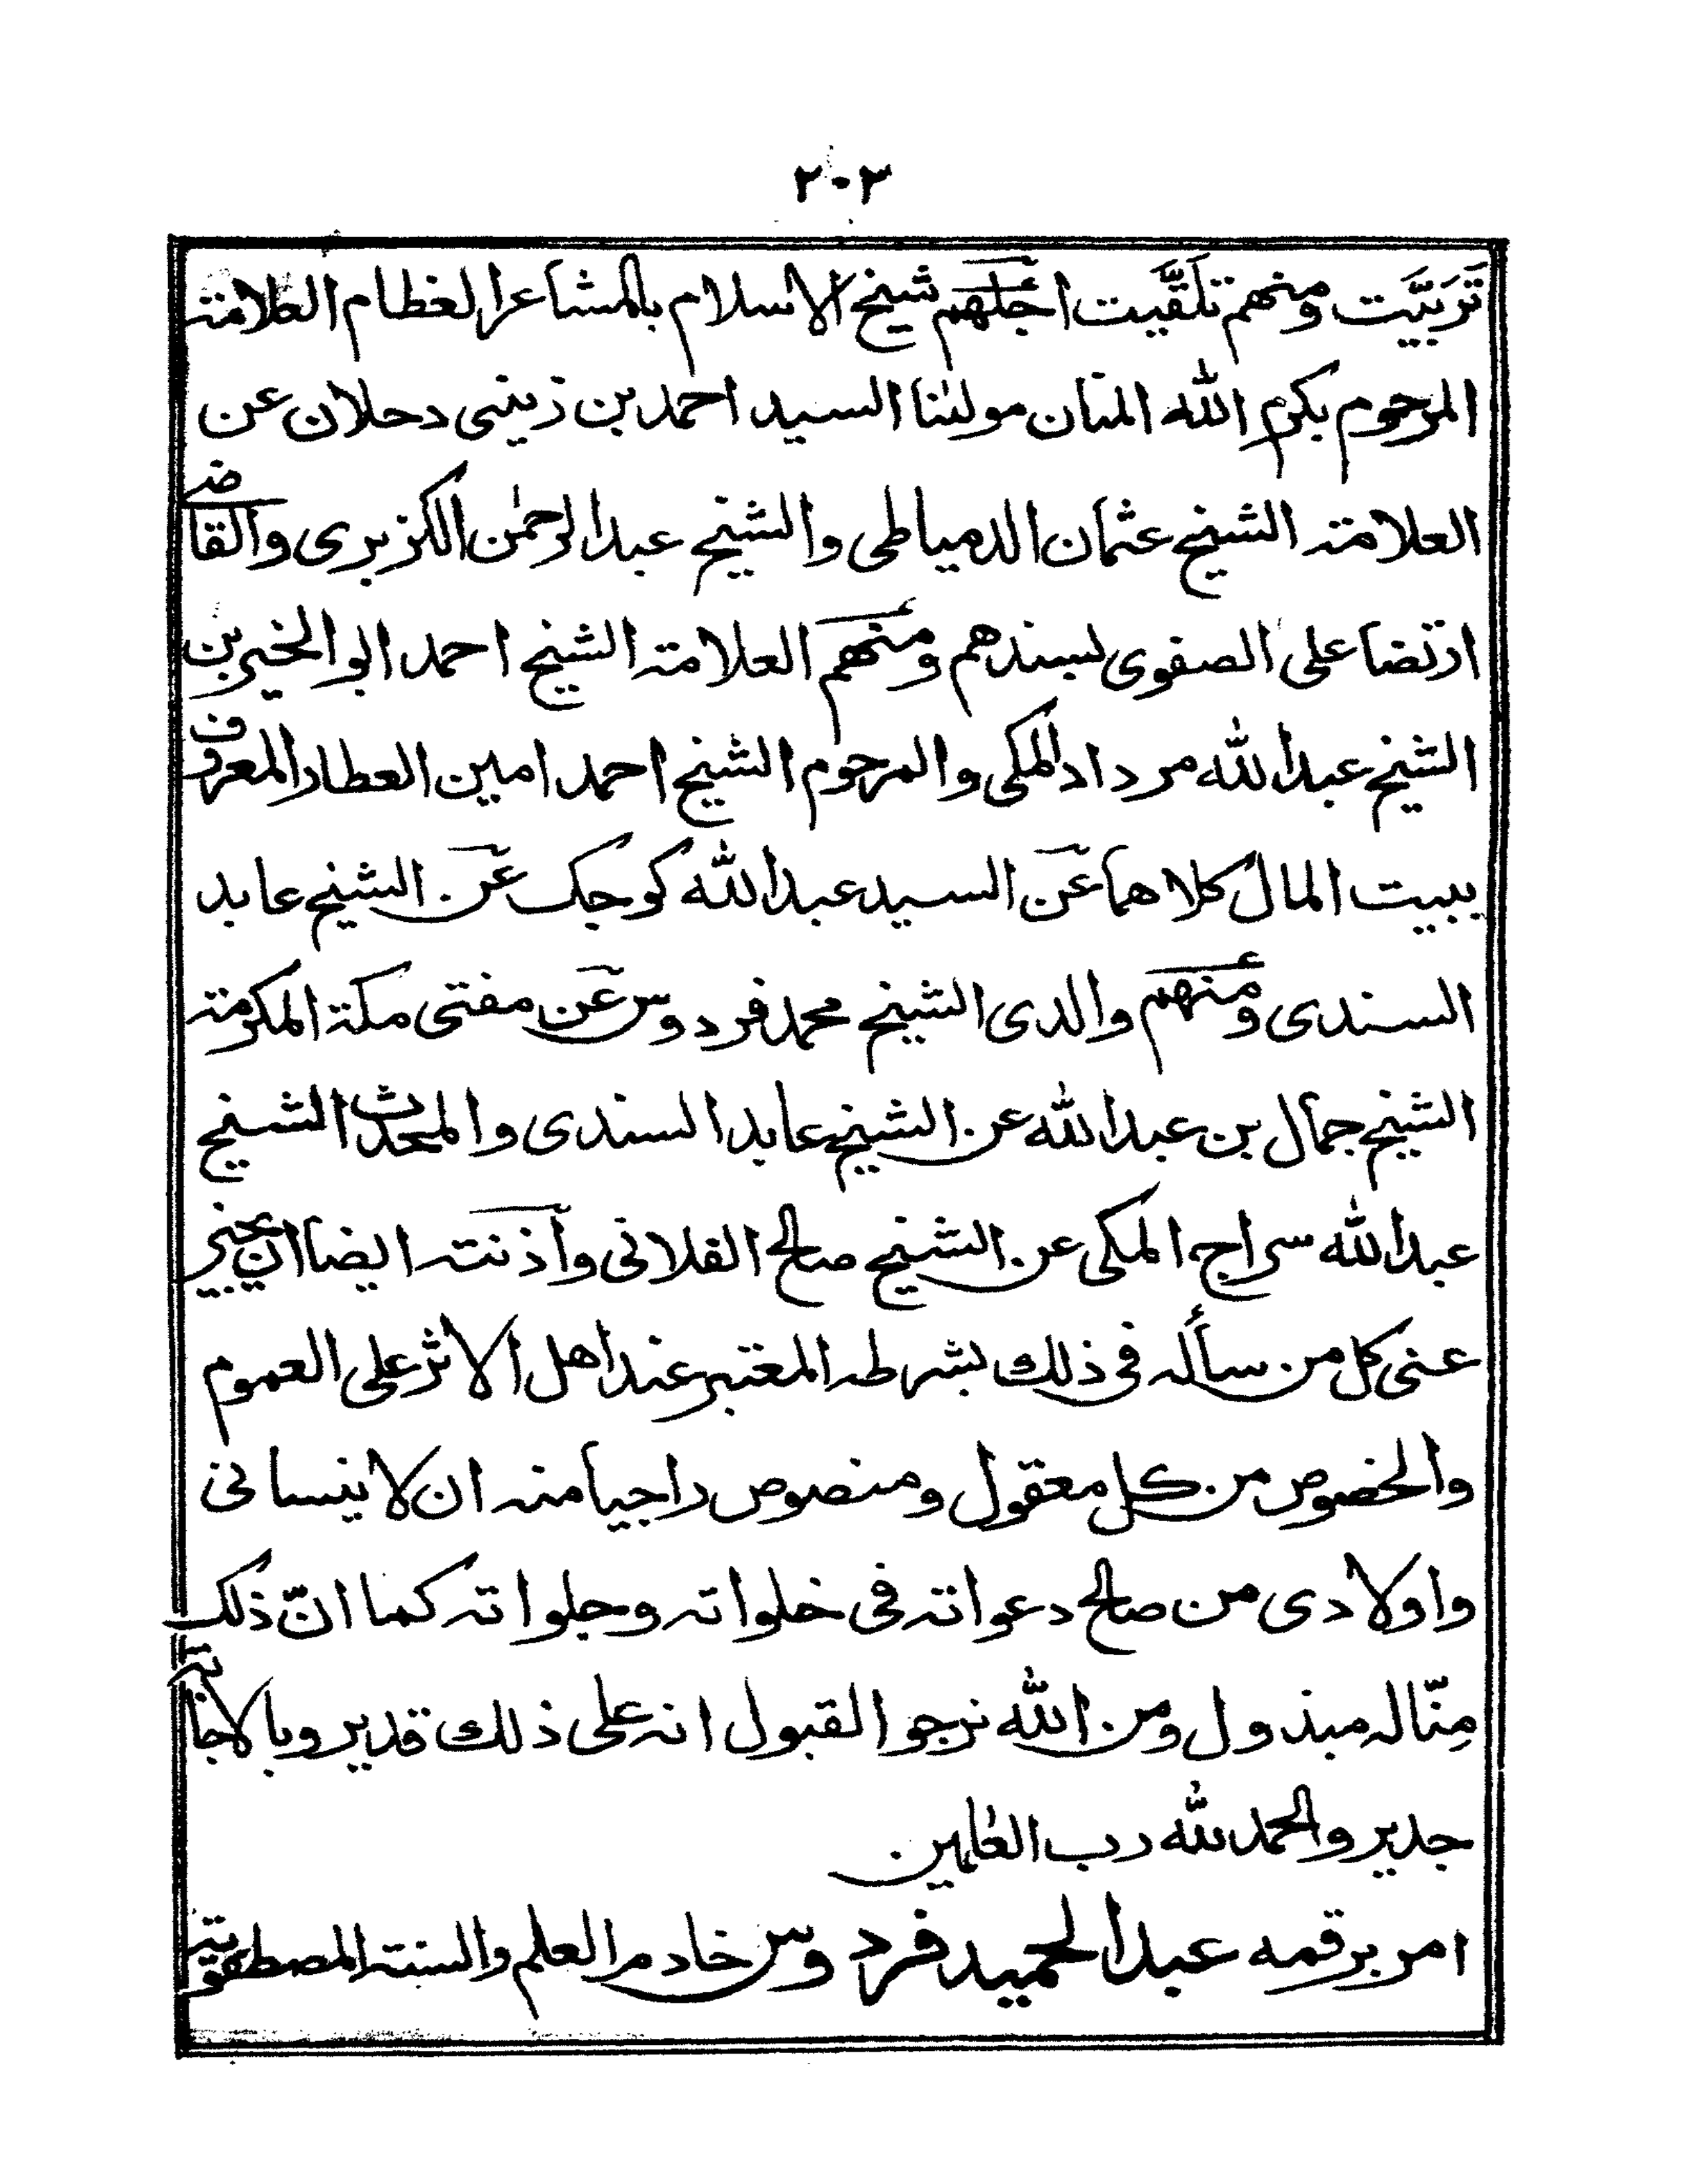 ٢٠٣
تَرَبَّيَت ومنهم تلَقَّيَت اجَلّهم شيخ الاسلام بالمشاعر العظام العلامة
المرحوم بكرم الله المنان مولٰنا السيد احمد بن زينى دحلان عن
العلامة الشيخ عثمان الدمياطى والشيخ عبدالرحمٰن الكزبرى والقاضى
ارتضا على الصفوى بسندهم ومنهم العلامة الشيخ احمد ابو الخير بن
الشيخ عبدالله مرداد المكى والمرحوم الشيخ احمد امين العطار المعروف
ببيت المال كلاهما عن السيد عبدالله كوجك عن الشيخ عابد
السندى ومنهم والدى الشيخ محمد فردوس عن مفتى مكة المكرمة
الشيخ جمال بن عبدالله عن الشيخ عابد السندى والمحدث الشيخ
عبدالله سراج المكى عن الشيخ صالح الفلانى وأذنته ايضا ان يجيز
عنى كل من سأله فى ذلك بشرطه المعتبر عند اهل الاثر على العموم
والخصوص من كل معقول ومنصوص راجيا منه ان لا ينسانى
واولادى من صالح دعواته فى خلواته وجلواته كما انّ ذلك
مِنّا له مبذول ومن الله نرجو القبول انه على ذلك قدير وبالاجابة
جدير والحمد لله رب العٰلمين
امر برقمه عبدالحميد فردوس خادم العلم والسنة المصطفوية